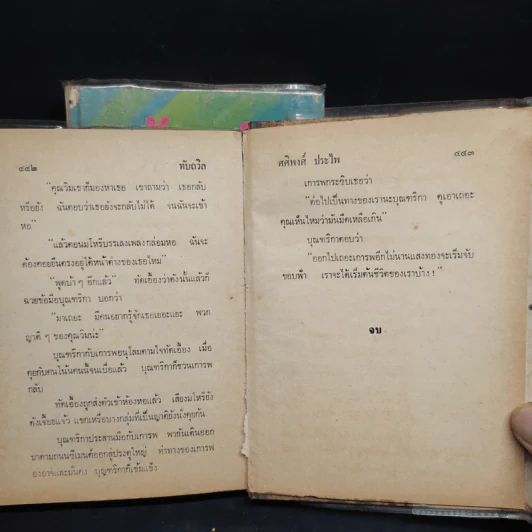 ๔๔๒ ทับถวิล
"คุณวิมเขาก็มองหาเธอ เขาถามว่า เธอกลับ
หรือยัง ฉันตอบว่าเธอยังจะกลับไม่ได้ จนฉันจะเข้า
หอ"
"แล้วตอนมโหรีบรรเลงเพลงกล่อมหอ ฉันจะ
ต้องคอยยืนตรงอยู่ใต้หน้าต่างของเธอไหม"
"พูดบ้า ๆ อีกแล้ว" ทัดเอื้องว่าดังนั้นแล้วก็
ฉวยข้อมือบุณฑริกา บอกว่า
"มาเถอะ มีคนอยากรู้จักเธอเยอะแยะ พวก
ญาติ ๆ ของคุณวิมน่ะ"
บุณฑริกากับเการพอนุโลมตามใจทัดเอื้อง เมื่อ
คุยกับคนโน้นคนนี้จนเบื่อแล้ว บุณฑริกาก็ชวนเการพ
กลับ
ทัดเอื้องถูกส่งตัวเข้าห้องหอแล้ว เสียงมโหรียัง
ดังเจื้อยแจ้ว แขกเหรื่อบางกลุ่มที่เป็นญาติยังนั่งคุยกัน
บุณฑริกาประสานมือกับเการพ พากันเดินออก
มาตามถนนซีเมนต์ออกสู่ประตูใหญ่ ท่าทางของเการพ
องอาจและมั่นคง บุณฑริกาก็เข้มแข็ง
ศศิพงศ์ ประไพ ๔๔๓
เการพกระซิบเธอว่า
"ต่อไปเป็นทางของเรานะบุณฑริกา ดูเอาเถอะ
คุณเห็นไหมว่ามันมืดเหลือเกิน"
บุณฑริกาตอบว่า
"ออกไปเถอะเการพอีกไม่นานแสงทองจะเริ่มจับ
ขอบฟ้า เราจะได้เริ่มต้นชีวิตของเราบ้าง !"
จบ